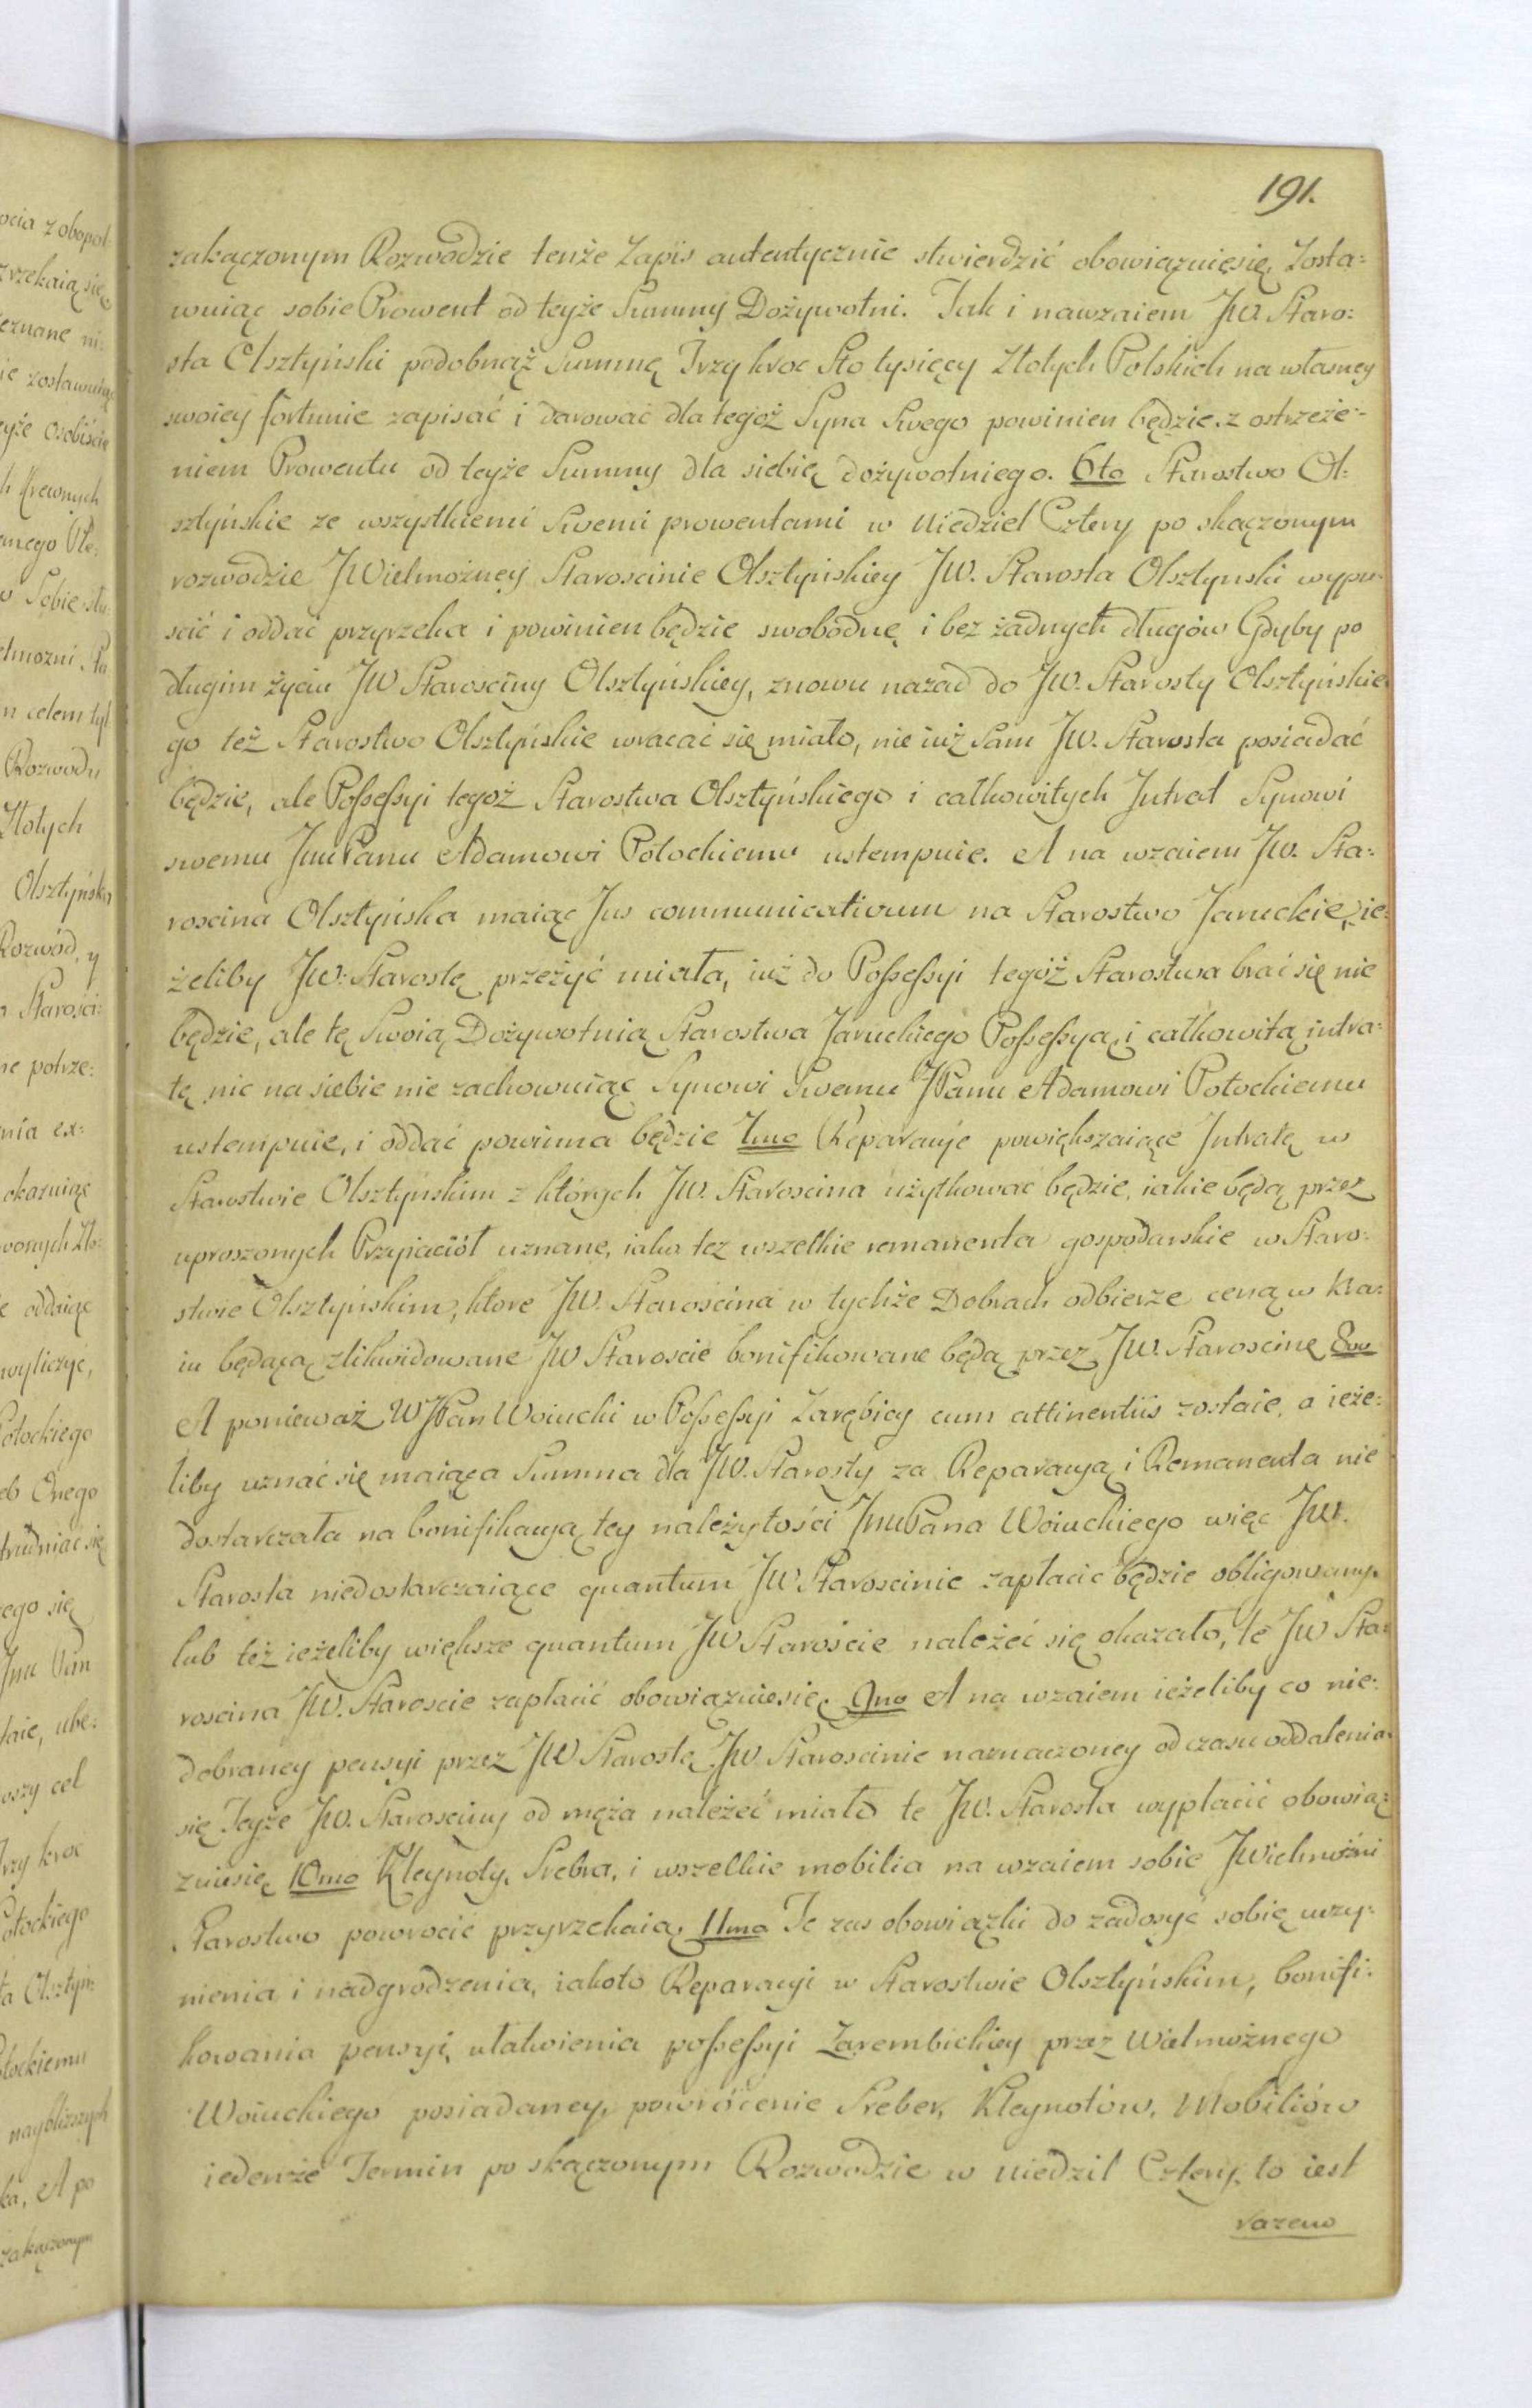 191.
zakączonym Rozwodzie tenże Zapis autentycznie stwierdzić obowiązuięsię, Zosta=
wuiąc sobie Prowent od teyże Summy Dożywotni. Tak i nawzaiem JW. Staro:
sta Olsztyński podobnąż Summę Trzy kroc Sto tysięcy Złotych Polskich na własney
swoiey fortunie zapisać i darować dla tegoż Syna Swego powinien będzie, z ostrzeże=
niem Prowentu od teyże Summy dla siebię dożywotniego. 6to Starostwo Ol:
sztyńskie ze wszystkiemi Swemi prowentami w Niedziel Cztery po skączonym
rozwodzie JWielmożney Staroscinie Olsztyńskiey JW. Starosta Olsztynski wypu=
scić i oddać przyrzeka i powinien będzie swobodnę i bez żadnych długów Gdyby po
długim życiu JW Starosciny Olsztyńskiey, znowu nazad do JW. Starosty Olsztyńskie
go też Starostwo Olsztyńskie wracać się miało, nie iuż Sam JW. Starosta posiadać
będzie, ale Possessyi tegoż Starostwa Olsztyńskiego i całkowitych Intrat Synowi
swemu JmuPanu Adamowi Potockiemu ustempuie. A na wzaiem JW. Sta:
roscina Olsztyńska maiąc Jus communicativum na Starostwo Jaruckie, ie:
żeliby JW. Starostę przeżyć miała, iuż do Possessyi tegóż Starostwa brać się nie
będzie, ale tę Swoią Dożywotnią Starostwa Jaruckiego Possessyą, i całkowitą intra=
tę nic na siebie nie zachowuiąc Synowi Swemu JPanu Adamowi Potockiemu
ustempuie, i oddać powinna będzie 7mo Reparacye powiększaiące Intratę w
Starostwie Olsztyńskim z których JW. Staroscina użytkować będzie, iakie będą przez
uproszonych Przyiaciół uznane, iako tez wszelkie remanenta gospodarskie w Staro=
stwie Olsztyńskim, ktore JW. Staroscina w tychże Dobrach odbierze ceną w Kra=
iu będącą zlikwidowane JW Staroscie bonifikowane będą przez JW. Staroscinę 8vo
A ponieważ WJPan Woiucki w Possessyi Zarębicy cum attinentiis zostaie, a ieże:
liby uznać się maiąca Summa dla JW. Starosty za Reparacyą i Remanenta nie
dostarczała na bonifikacyą tey należytości JmuPana Woiuckiego więc JW.
Starosta niedostarczaiące quantum JW Staroscinie zapłacic będzie obligowany,
lub też ieżeliby większe quantum JW Staroście należeć się okazało, te JW Sta=
roscina JW. Staroscie zapłacić obowiązuiesię, 9no A na wzaiem ieżeliby co nie:
dobraney pensyi przez JW Starostę JW. Staroscinie naznaczoney od czasu oddalenia
się Teyże JW. Starosciny od męża należeć miało te JW. Starosta wypłacić obowią=
zuiesię, 10mo Kleynoty, Srebra, i wszelkie mobilia na wzaiem sobie JWielmożni
Starostwo powrocić przyrzekaią, 11mo Te zas obowiązki do zadosyć sobię uczy=
nienia i nadgrodzenia, iakoto Reparacyi w Starostwie Olsztyńskim, bonifi:
kowania pensyi, ułatwienia possessyi Zarembickiey przez Wielmożnego
Woiuckiego posiadaney, powrócenie Sreber, Kleynotów, Mobiliów
iedenże Termin po skączonym Rozwodzie w niedzil Cztery, to iest
razem